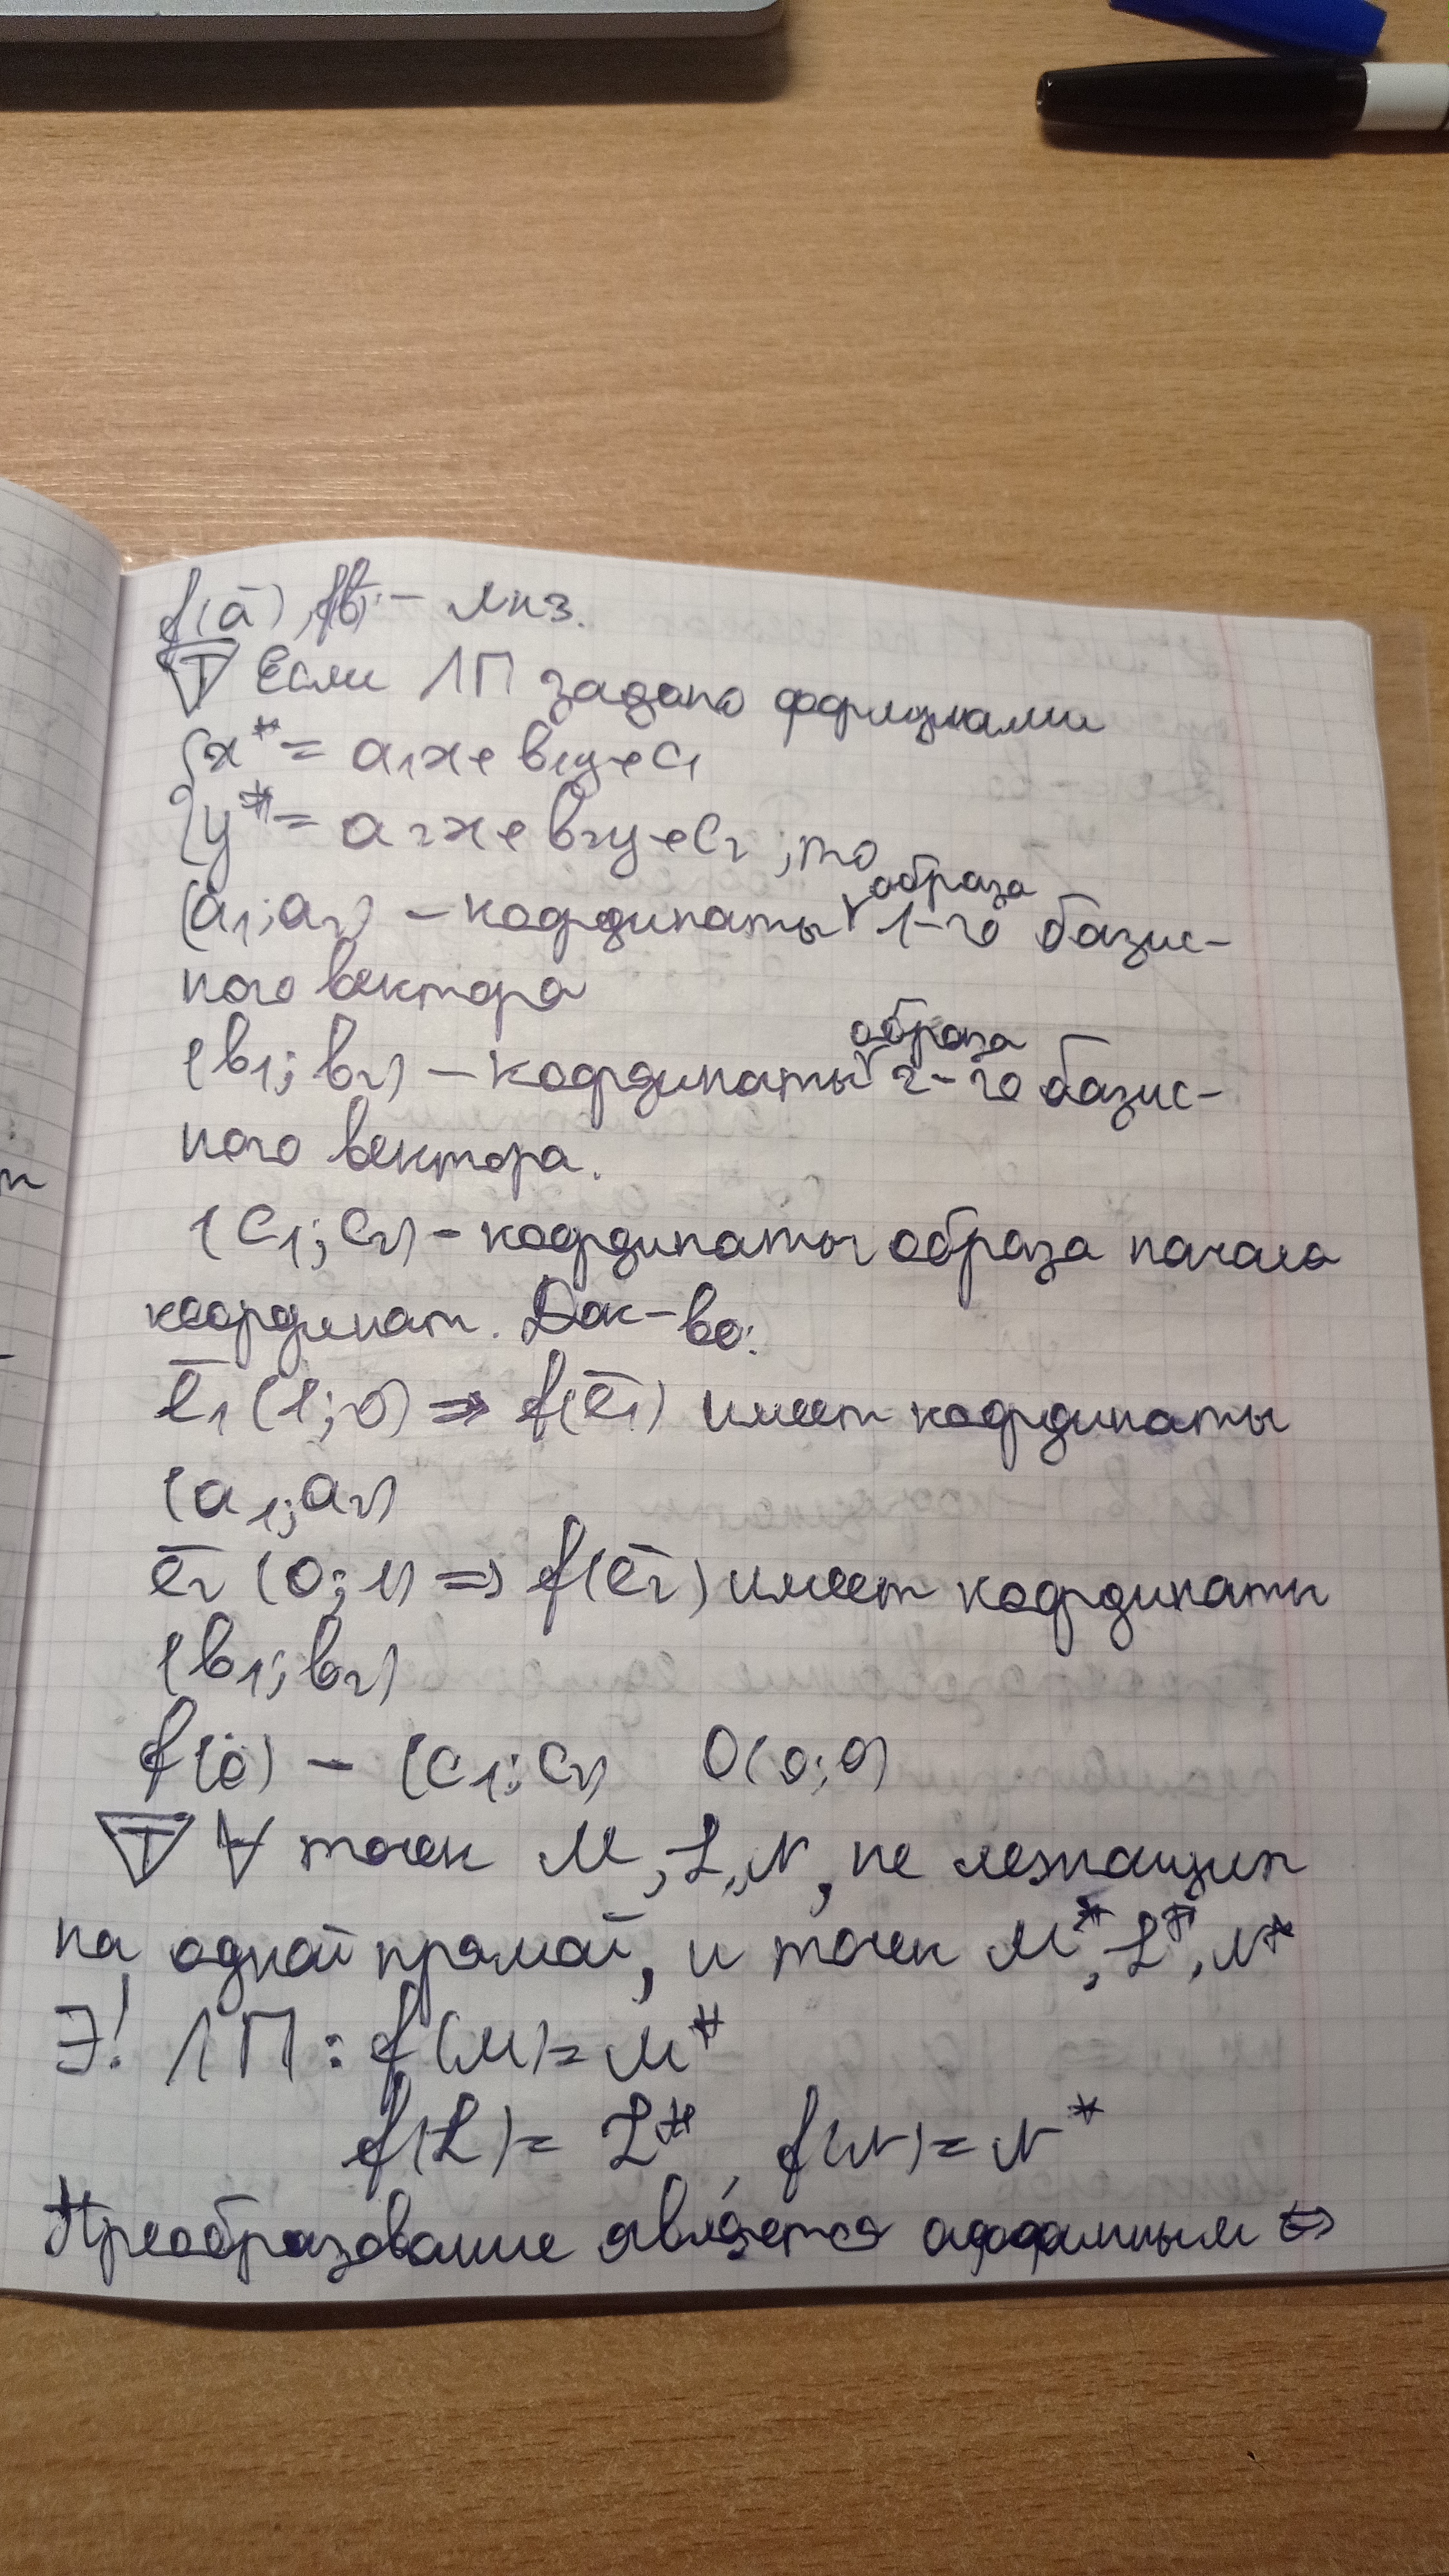 f(ā), f(b̄) – ЛНЗ.
T Если ЛП задано формулами
{ x* = a₁x + b₁y + c₁
{ y* = a₂x + b₂y + c₂ ; то
(a₁; a₂) – координаты образа 1-го базис-
ного вектора
(b₁; b₂) – координаты образа 2-го базис-
ного вектора.
(c₁; c₂) – координаты образа начала
координат. Док-во:
ē₁ (1; 0) ⇒ f(ē₁) имеет координаты
(a₁; a₂)
ē₂ (0; 1) ⇒ f(ē₂) имеет координаты
(b₁; b₂)
f(o) – (c₁; c₂) O(0; 0)
T ∀ точек M, L, N, не лежащих
на одной прямой, и точек M*, L*, N*
∃! ЛП : f(M) = M*
f(L) = L* f(N) = N*
Преобразование является аффинным ⇔